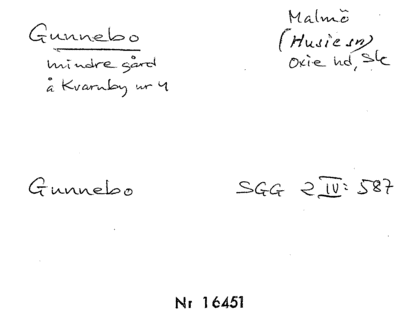 Gunnebo
mindre gård
å Kvarnby nr 4
Malmö
(Husie sn)
Oxie hd, Sk
Gunnebo
SGG 2 IV: 587
Nr 16451